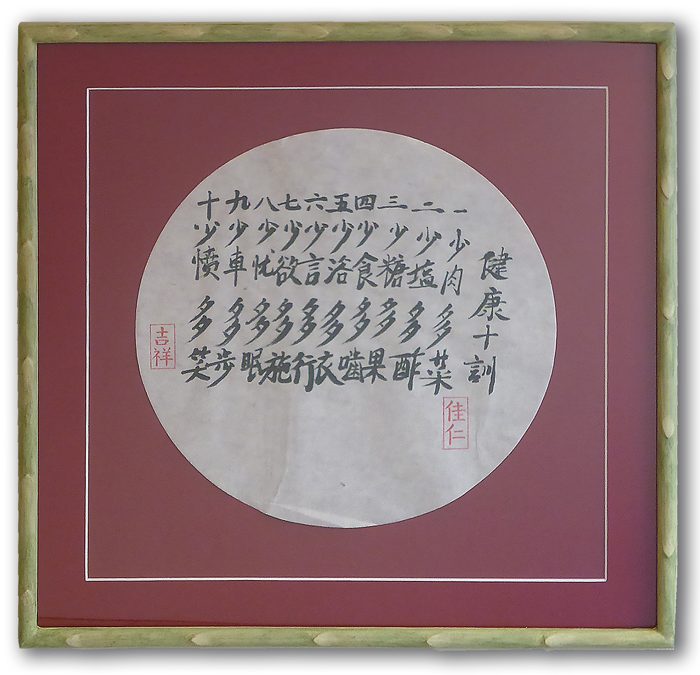 健康十訓
一少肉多菜
二少塩多酢
三少糖多果
四少食多噛
五少浴多衣
六少言多行
七少欲多施
八少忧多眠
九少車多歩
十少憤多笑
佳仁
吉祥